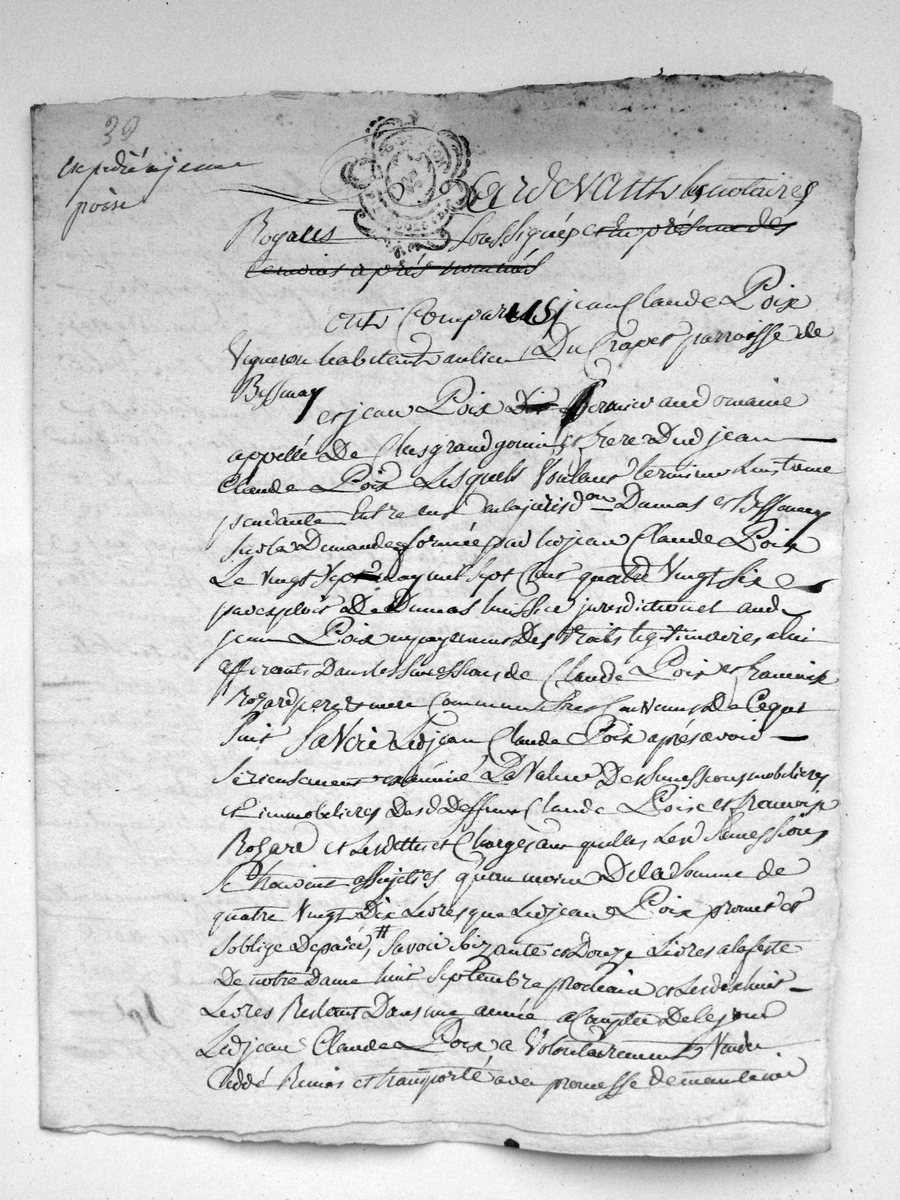 39
expedié a jean
poix
Pardevant les notaires
Royaux Soussignés et en présence des
temoins après nommés
ont Comparus jean Claude Poix
Vigneron habitant au lieu Du Crapet parroisse de
Bessenay
et jean Poix dit fermier au domaine
appellé De Chesgrandgonin et frere Dud jean
Claude Poix Lesquels Voulant terminer Linstance
pendante Entre eux en la jurisdon Damas et Bessenay
Sur la Demande formée par led jean Claude Poix
Le Vingt Sept may mil Sept Cent quatre Vingt Six
par exploit De Dumas huissier jurisdictionel aud
jean Poix en payement Des droits legitimaires a lui
afferants Dans les Successions de Claude Poix et francoise
Rozard pere et mere Communs Sont Convenus De Ceque
Suit Savoir Led jean Claude Poix après avoir
Serieusement examiné La Valeur Des Successions mobilieres
et immobilieres Desd Deffunts Claude Poix et francoise
Rozard et Les dettes et Charges aux quelles Lesd Successions
Se trouvent assujeties qu'au moien De la Somme de
quatre Vingt Dix Livres que Led jean Poix promet et
Soblige De paier, # Savoir Soixante et Douze Livres a la feste
De notre Dame huit Septembre prochain et Les dix huit
Livres Restant Dans une année a Compter De ce jour
Led jean Claude Poix a Volontairement Vendu
Ceddé Remis et transporté avec promesse de maintenir